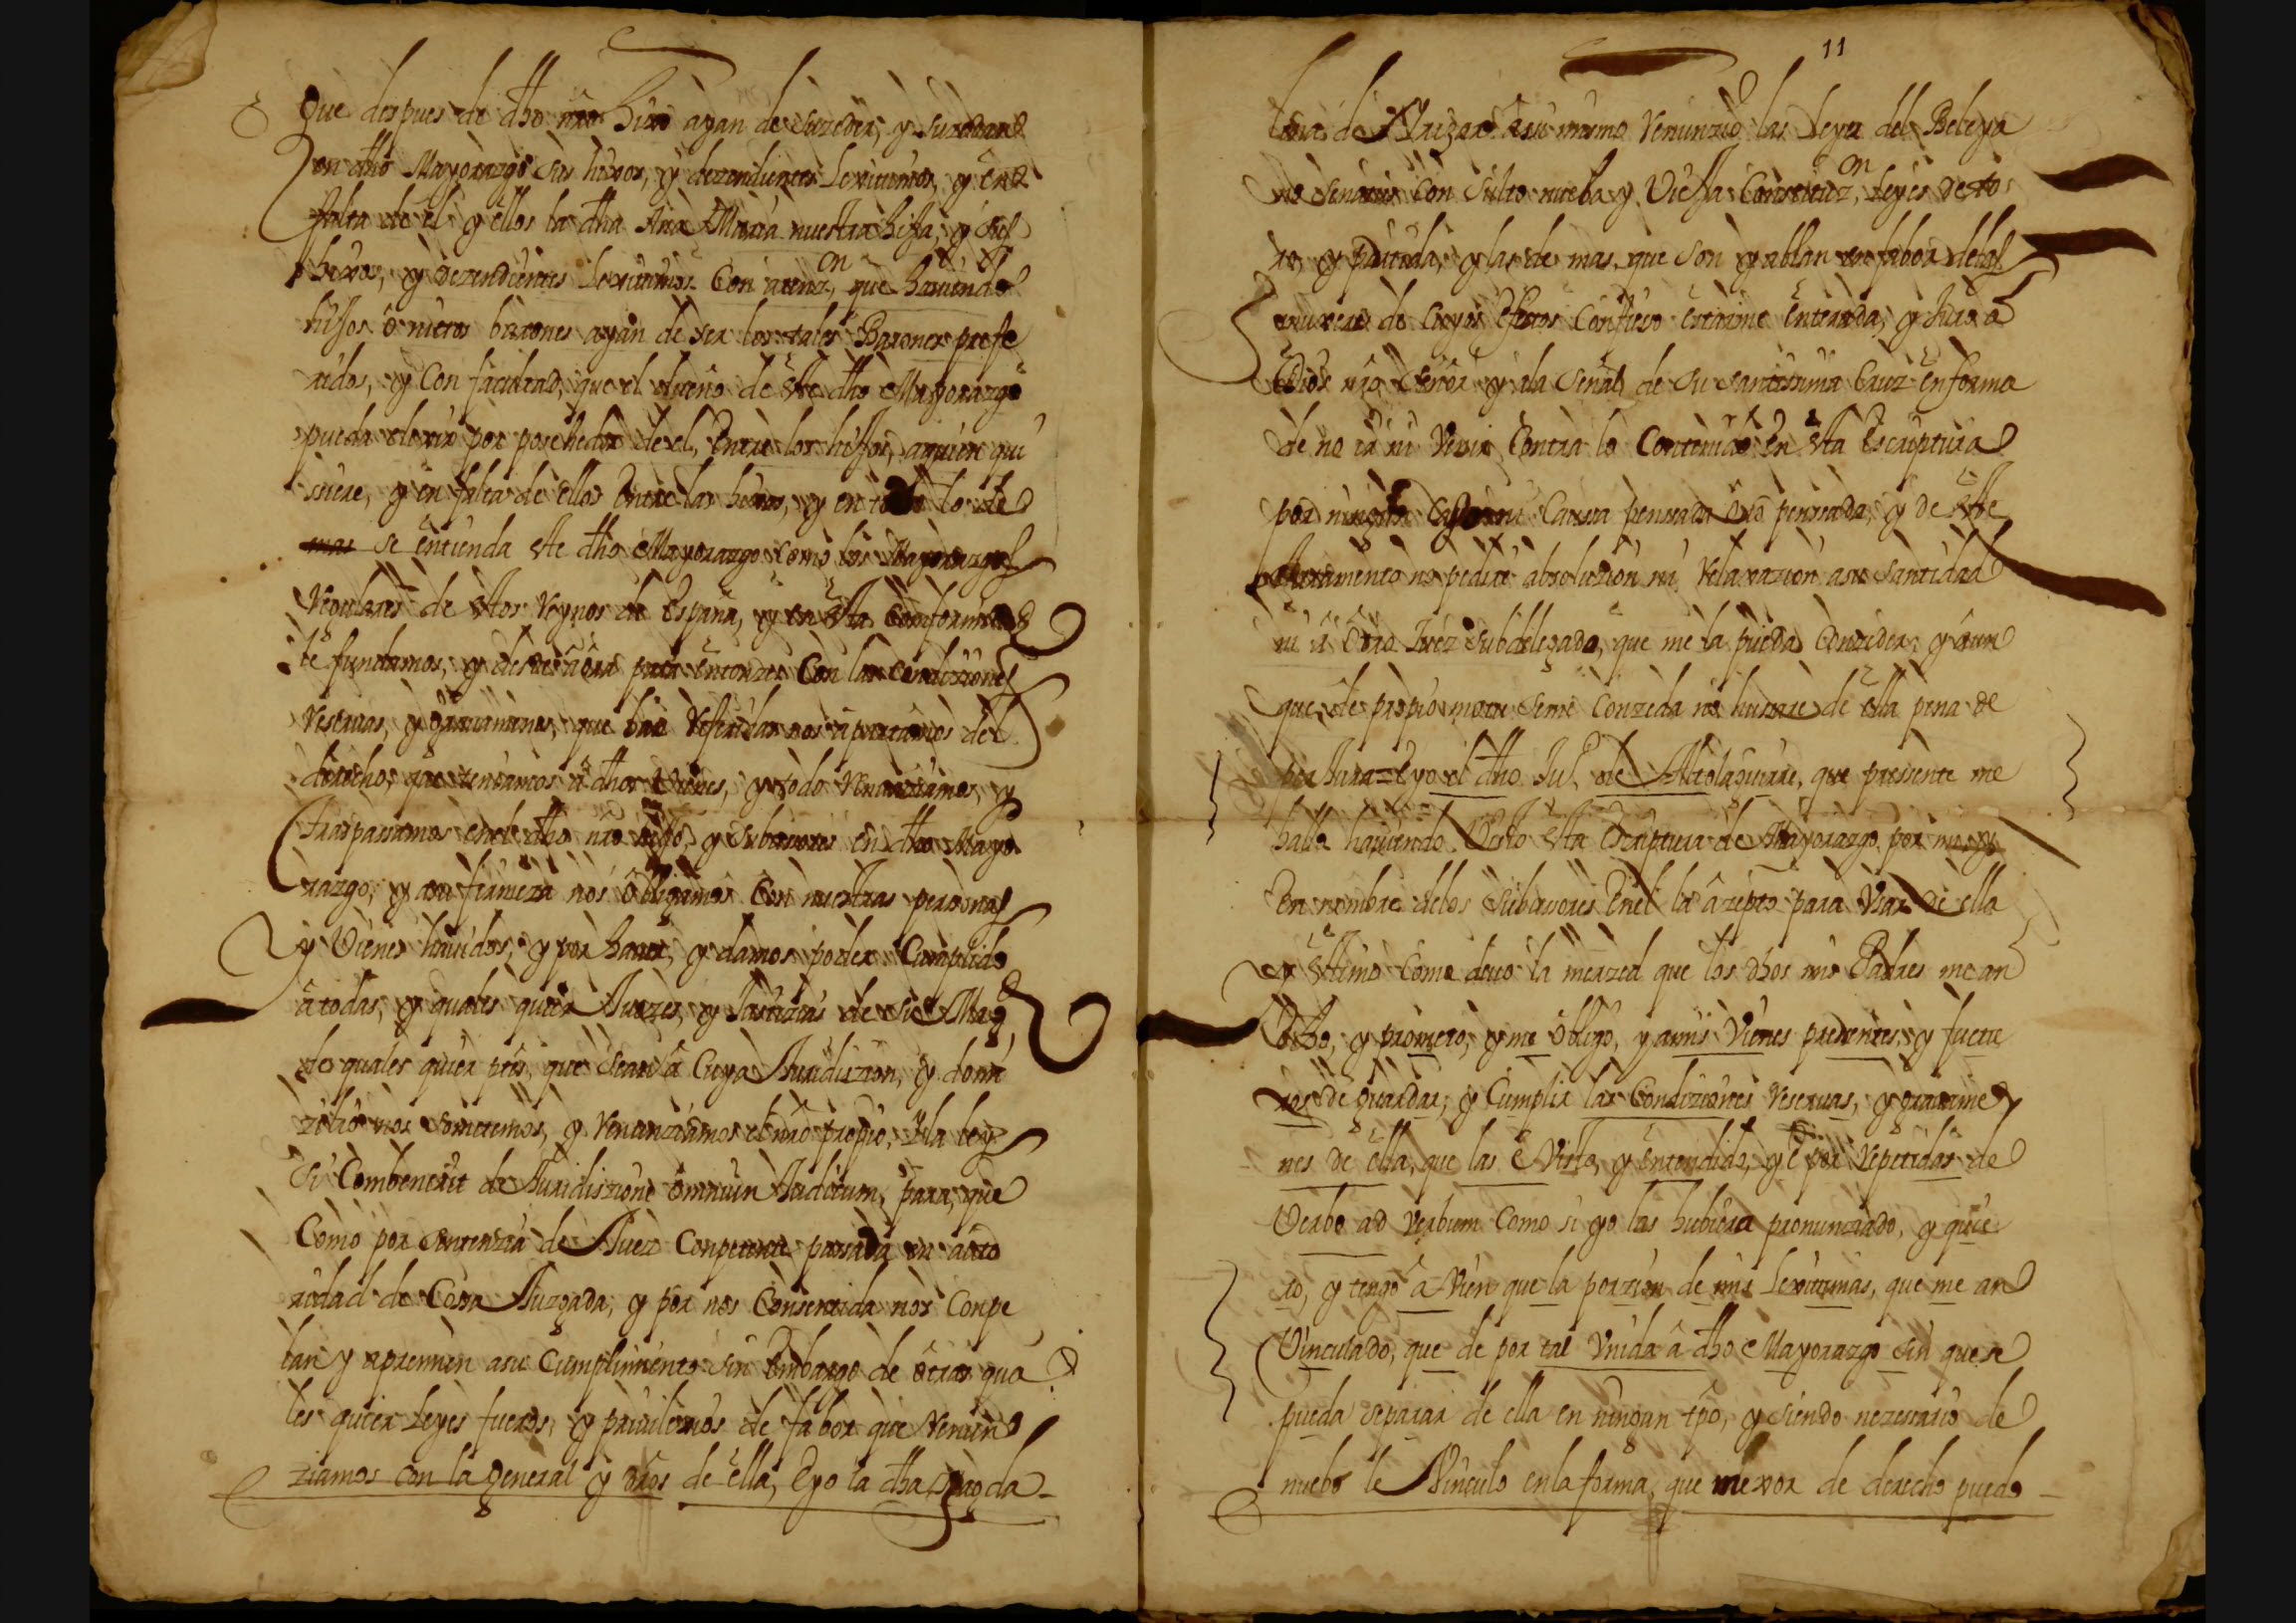 Que despues de dho nro hixo ayan de suzeder, y suzedan
en dho Mayorazgo sus hixos, y dezendientes lexitimos, y en
falta de el y ellos la dha Ana Maria nuestra hija, y sus
hixos, y dezendientes lexitimos Con atenz.on que haviendo
hijos o nietos barones ayan de ser los tales Barones prefe
ridos, y Con facultad, que el dueño de este dho Mayorazgo
pueda elexir por posehedor de el, Entre los hijos, aquien qui
siere, y en falta de ellos Entre las hixas, y en todo lo de
mas se entienda este dho Mayorazgo como los Mayorazgos
Regulares de estos Reynos de España, y en esta Conformidad
le fundamos, y desde aora para entonzes Con las Condiziones
Reservas, y gravamenes, que ban Referidas nos apartamos del
derecho, que teniamos a dhos Vienes, y todo Renunziamos, y
traspasamos en el dho nro hijo, y subzesores en dho Mayo
razgo, y a su firmeza nos Obligamos Con nuestras personas
y Vienes havidos, y por haver, y damos poder Cumplido
a todas, y quales quier Juezes, y Justizias de Su Mag.d
de quales quier ptes, que sean a Cuya Jurisdizion, y domi
zilio nos sometemos, y Renunziamos el nro propio, y la ley
Si Combenerit de Jurisdizione omniun Judicum, para, que
Como por sentenzia de Juez Conpetente pasada en auto
ridad de Cosa Juzgada, y por nos Consentida nos Conpe
lan y apremien a su Cumplimiento sin Embargo de otras qua
les quier Leyes fueros, y privilexios de fabor que Renun
ziamos con la general y dros de ella, E yo la dha Magda-
11
lena de Aleizar asi mismo Renunzio las Leyes del Beleya
no Senatus Con Sulto nueba y Vieja Constituz.on Leyes de to
ro, y partida, y las de mas, que son y ablan en fabor de las
mugeres de Cuyos Efectos Confieso estarme enterada, y Juro a
Dios nro Señor y a la Señal de su santissima Cruz en forma
de no ir ni Venir Contra lo Contenido En esta Escriptura
por ningun Caso ni Causa pensada o no pensada, y de este
Juramento no pedire absoluzion ni Relaxazion a su Santidad
ni a Otro Juez Subdelegado, que me la pueda Conzeder, y aun
que de propio motu se me Conzeda no husare de ella pena de
perjura = E yo el dho Ju.o de Alcolaguirre, que presente me
hallo haviendo Visto esta Escriptura de Mayorazgo por mi y
En nombre de los Subzesores En el la azepto para Vsar de ella
y estimo Como devo la merzed que los dhos mis Padres me an
echo, y prometo, y me obligo, y a mis Vienes presentes, y futu
ros de guardar, y Cumplir las Condiziones Reservas, y gravame
nes de ella, que las e Visto, y entendido, y e por Repetidas de
Verbo ad Verbum Como si yo las hubiera pronunziado, y quie
ro, y tengo a Vien que la porzion de mis Lexitimas, que me an
Vinculado, que de por tal Vnida a dho Mayorazgo sin que se
pueda separar de ella en ningun tpo, y siendo nezesario de
nuebo le Vinculo en la forma, que mexor de derecho puedo